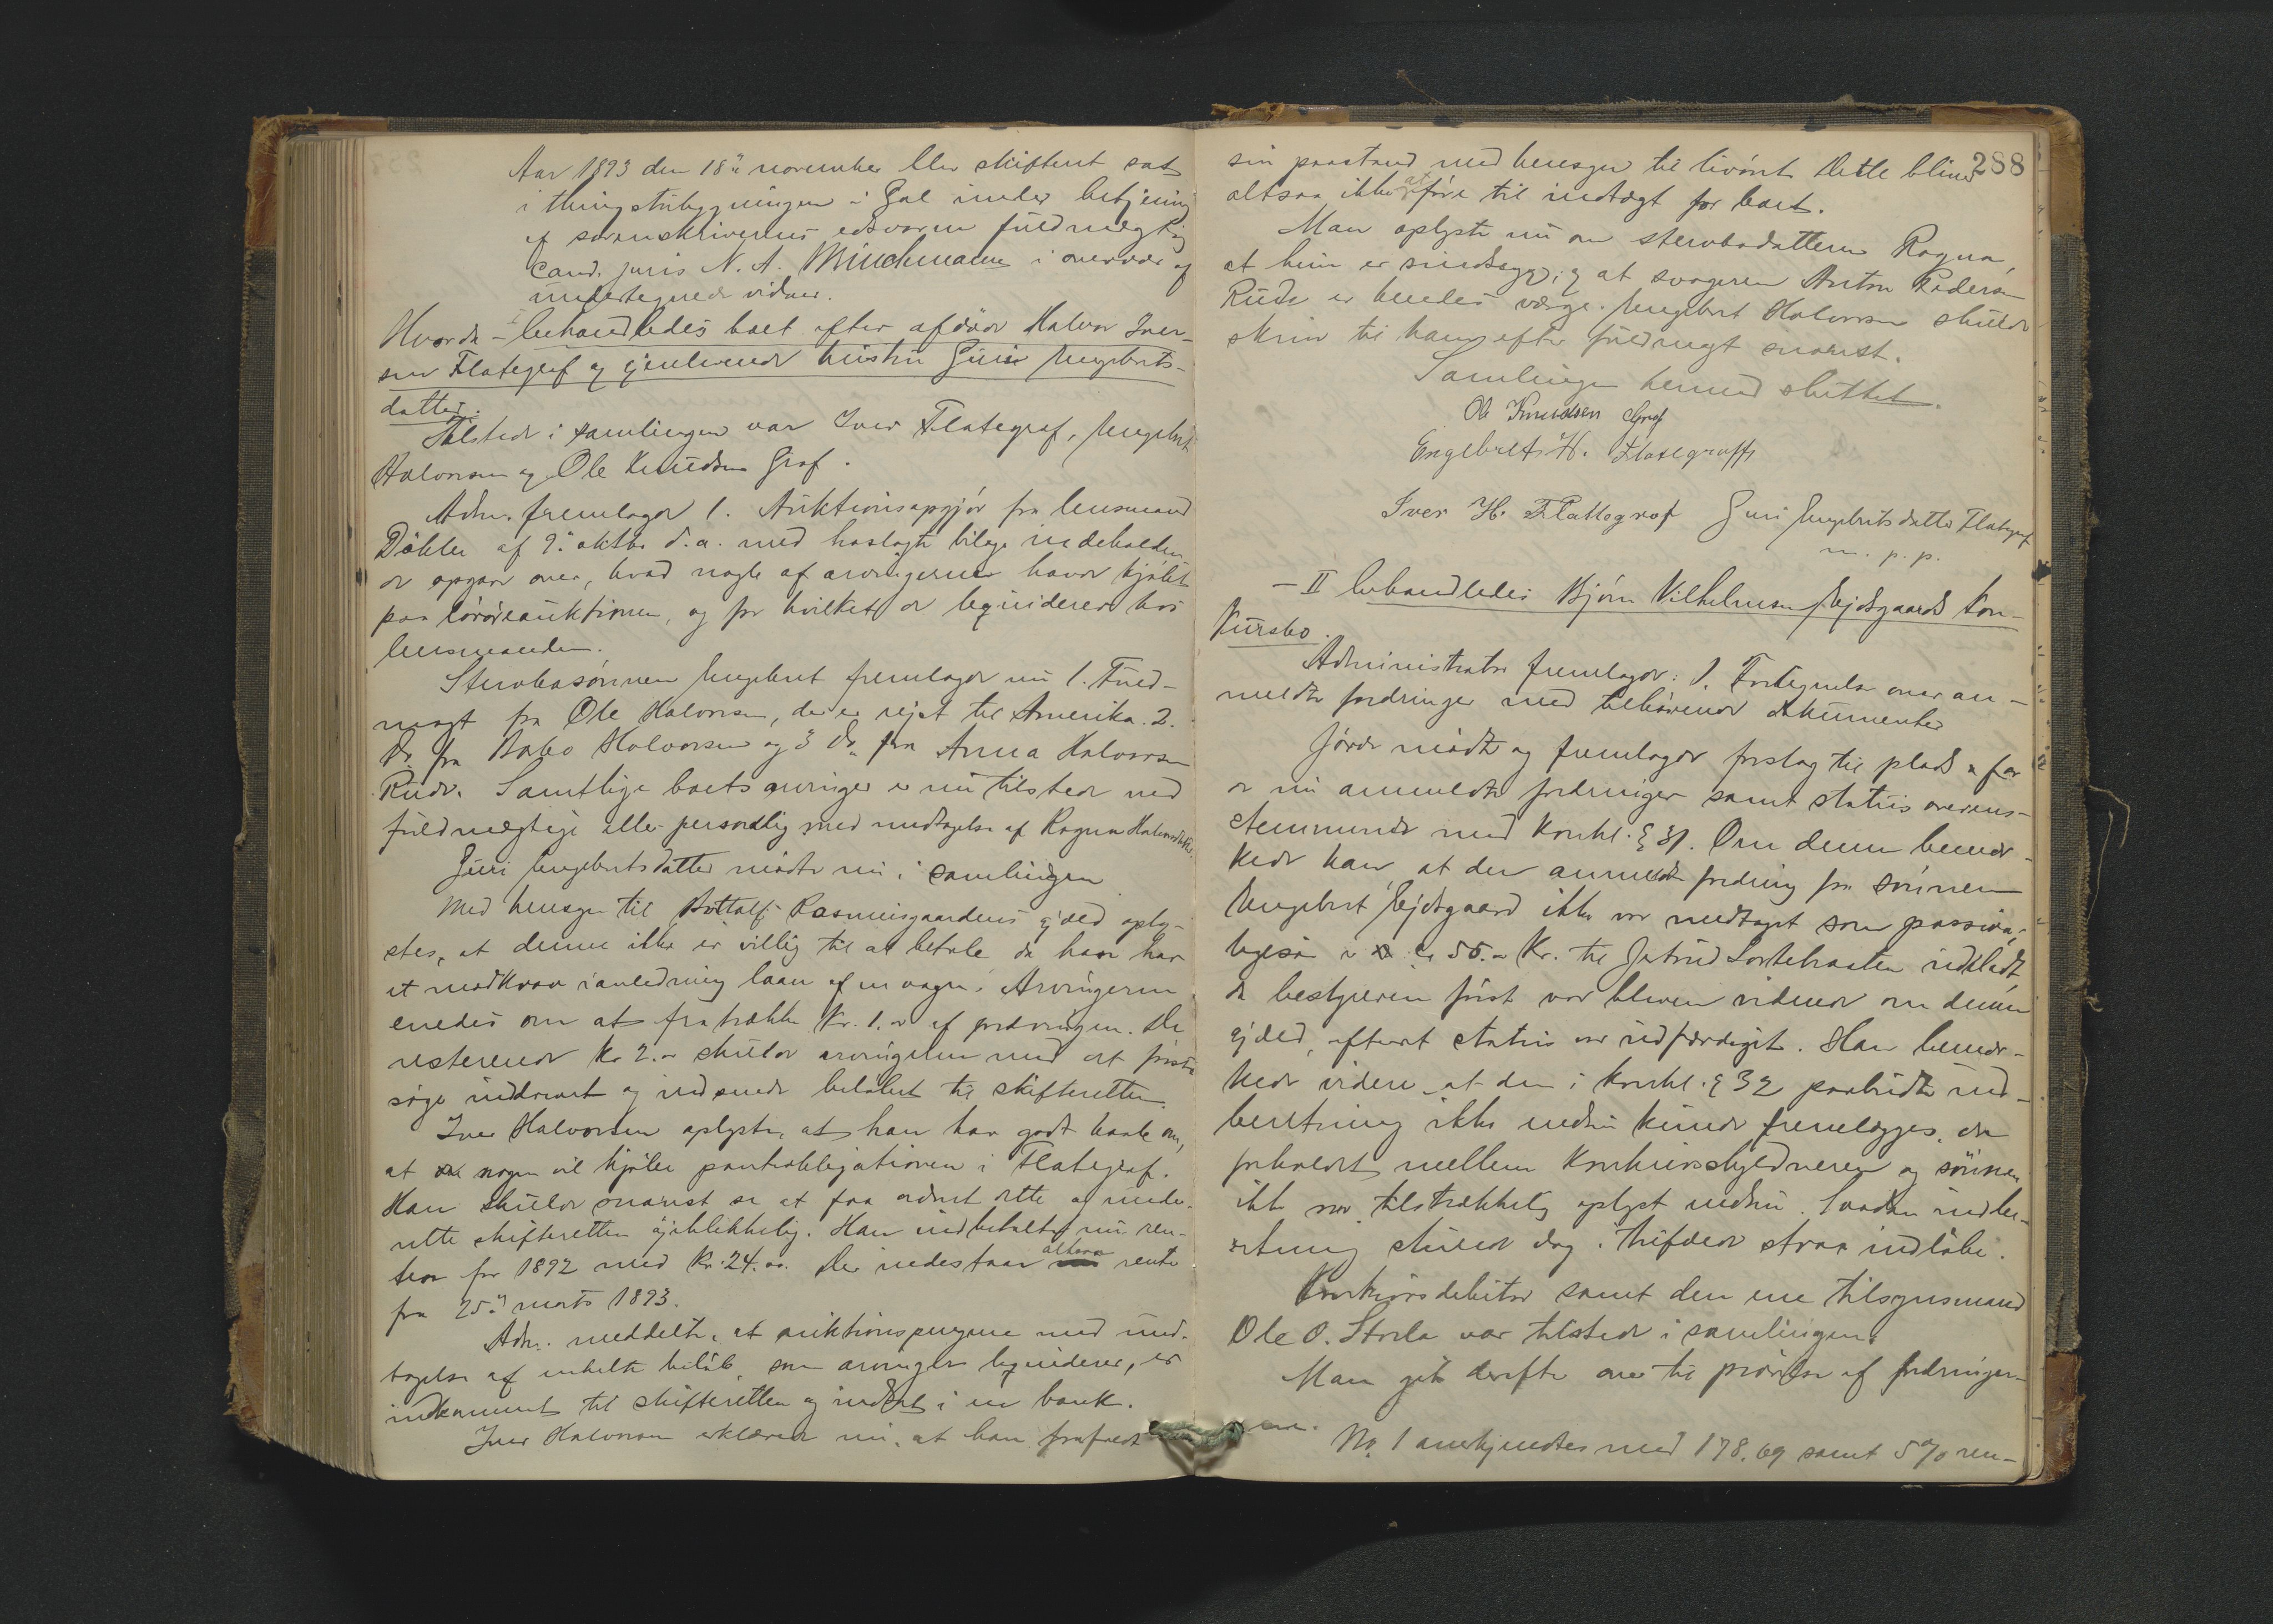 Aar 1893 den 18de november blev skifteret sat
i thingstubygningen i Gol under betjening
af sorenskriverens edsvorne fuldmægtig
cand. juris N. A. Minchmann i overvær af
undertegnede vidner.
Hvorda
I behandledes boet efter afdøde Halvor Iver-
sen Flategraf og gjenlevende hustru Guri Engebrets-
datter.
Tilstede i samlingen var Iver Flategraf, Engebret
Halvorsen og Ole Knudsen Graf.
Adm. fremlagde 1. Auktionsopgjør fra lensmand
Døhlen af 9de oktbr d. a. med heslagte bilage indeholden-
de opgave over, hvad nogle af arvingerne havde kjøbt
paa løsøreauktionen, og for hvilket de liquiderede hos
lensmanden.
Stervbosønnen Engebret fremlagde nu 1. Fuld-
magt fra Ole Halvorsen, der er rejst til Amerika. 2.
Do fra Halvorsen og 3 do fra Anna Halvorsen
Rude. Samtlige boets arvinger er nu tilstede ved
fuldmægtige eller personlig med undtagelse af Ragna Halvorsdatter.
Guri Engebretsdatter mødte nu i samlingen
Med hensyn til Bottolf Rasmusgaardens gjæld oply-
stes, at denne ikke er villig til at betale da han har
et modkrav i anledning laan af en vogn. Arvingerne
enedes om at fratrække Kr. 1.00 af fordringen. De
resterende Kr 2.00 skulde arvingerne med det første
søge inddrevet og indsende beløbet til skifteretten.
Iver Halvorsen oplyste, at han har godt haab om,
at nogen vil kjøbe pantobligationen i Flategraf.
Han skulde snarest se at faa ordnet dette og under-
rette skifteretten øjeblikkelig. Han indbetalte nu ren-
ten for 1892 med Kr. 24.00. Der indestaar altsaa rente
fra 25de marts 1893.
Adm. meddelte, at auktionspengene med und-
tagelse af enkelte beløb, som arvinger liquiderer, er
indkommet til skifteretten og indsat i en bank.
Iver Halvorsen erklærede nu, at han frafaldt
288
sin paastand med hensyn til livøret. Dette bliver
altsaa ikke at føre til indtægt for boet.
Man oplyste nu om stervbodatteren Ragna,
at hun er sindssyg, og at svogeren Anton Pedersen
Rude er hendes værge. Engebret Halvorsen skulde
skrive til ham efter fuldmagt snarest.
Samlingen hermed sluttet.
Ole Knudsen Graf
Engebret H. Flategraff
Iver H. Flattegraf Guri Engebritsdatter Flategraf
m. p. p.
- II behandledes Bjørn Vilhelmsen Ejdsgaards kon-
kursbo.
Administrator fremlagde: 1. Fortegnelse over an-
meldte fordringer med tilhørende dokumenter
mødte og fremlagde forslag til plads for
de nu anmeldte fordringer samt status overens-
stemmende med Konkl. § 31. Om denne bemær-
kede han, at den anmeldte fordring fra sønnen
Engebret Ejdsgaard ikke var medtaget som passiva,
ligesaa er ca 55.00 Kr. til Jertrud Sortebraaten udeladt
da bestyreren først var bleven vidende om denne
gjæld, efterat status var udfærdiget. Han bemær-
kede videre at den i Konkl. § 32 paabudte ind-
beretning ikke endnu kunde fremlægges, da
forholdet mellem Konkursskyldneren og sønnen
ikke var tilstrækkelig oplyst endnu. Saadan indbe-
retning skulde dog tilfælde straks indløbe.
Konkursdebitor samt den ene tilsynsmand
Ole O. Storla var tilstede i samlingen.
Man gik derefter over til prøvelse af fordringer-
ne.
No. 1 anerkjendtes med 178.69 samt 5 % ren-